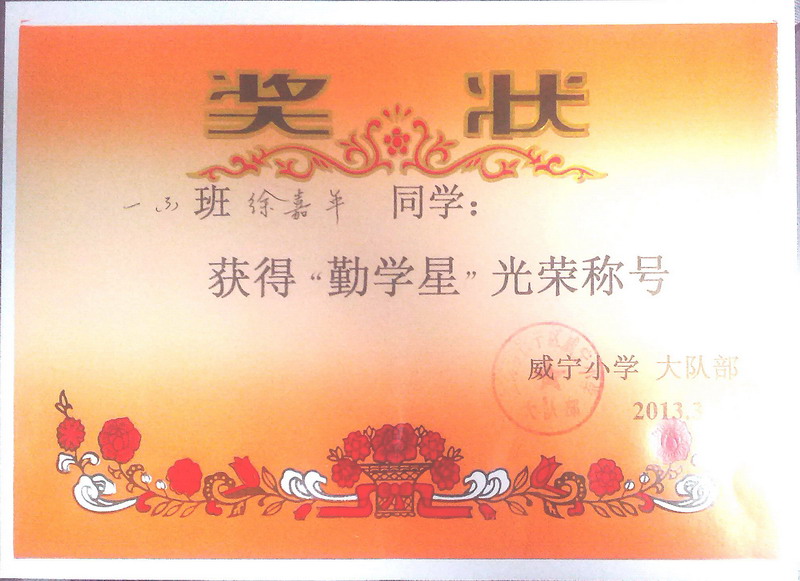 奖状
一(3)班 徐嘉平 同学:
获得“勤学星”光荣称号
威宁小学 大队部
2013.3